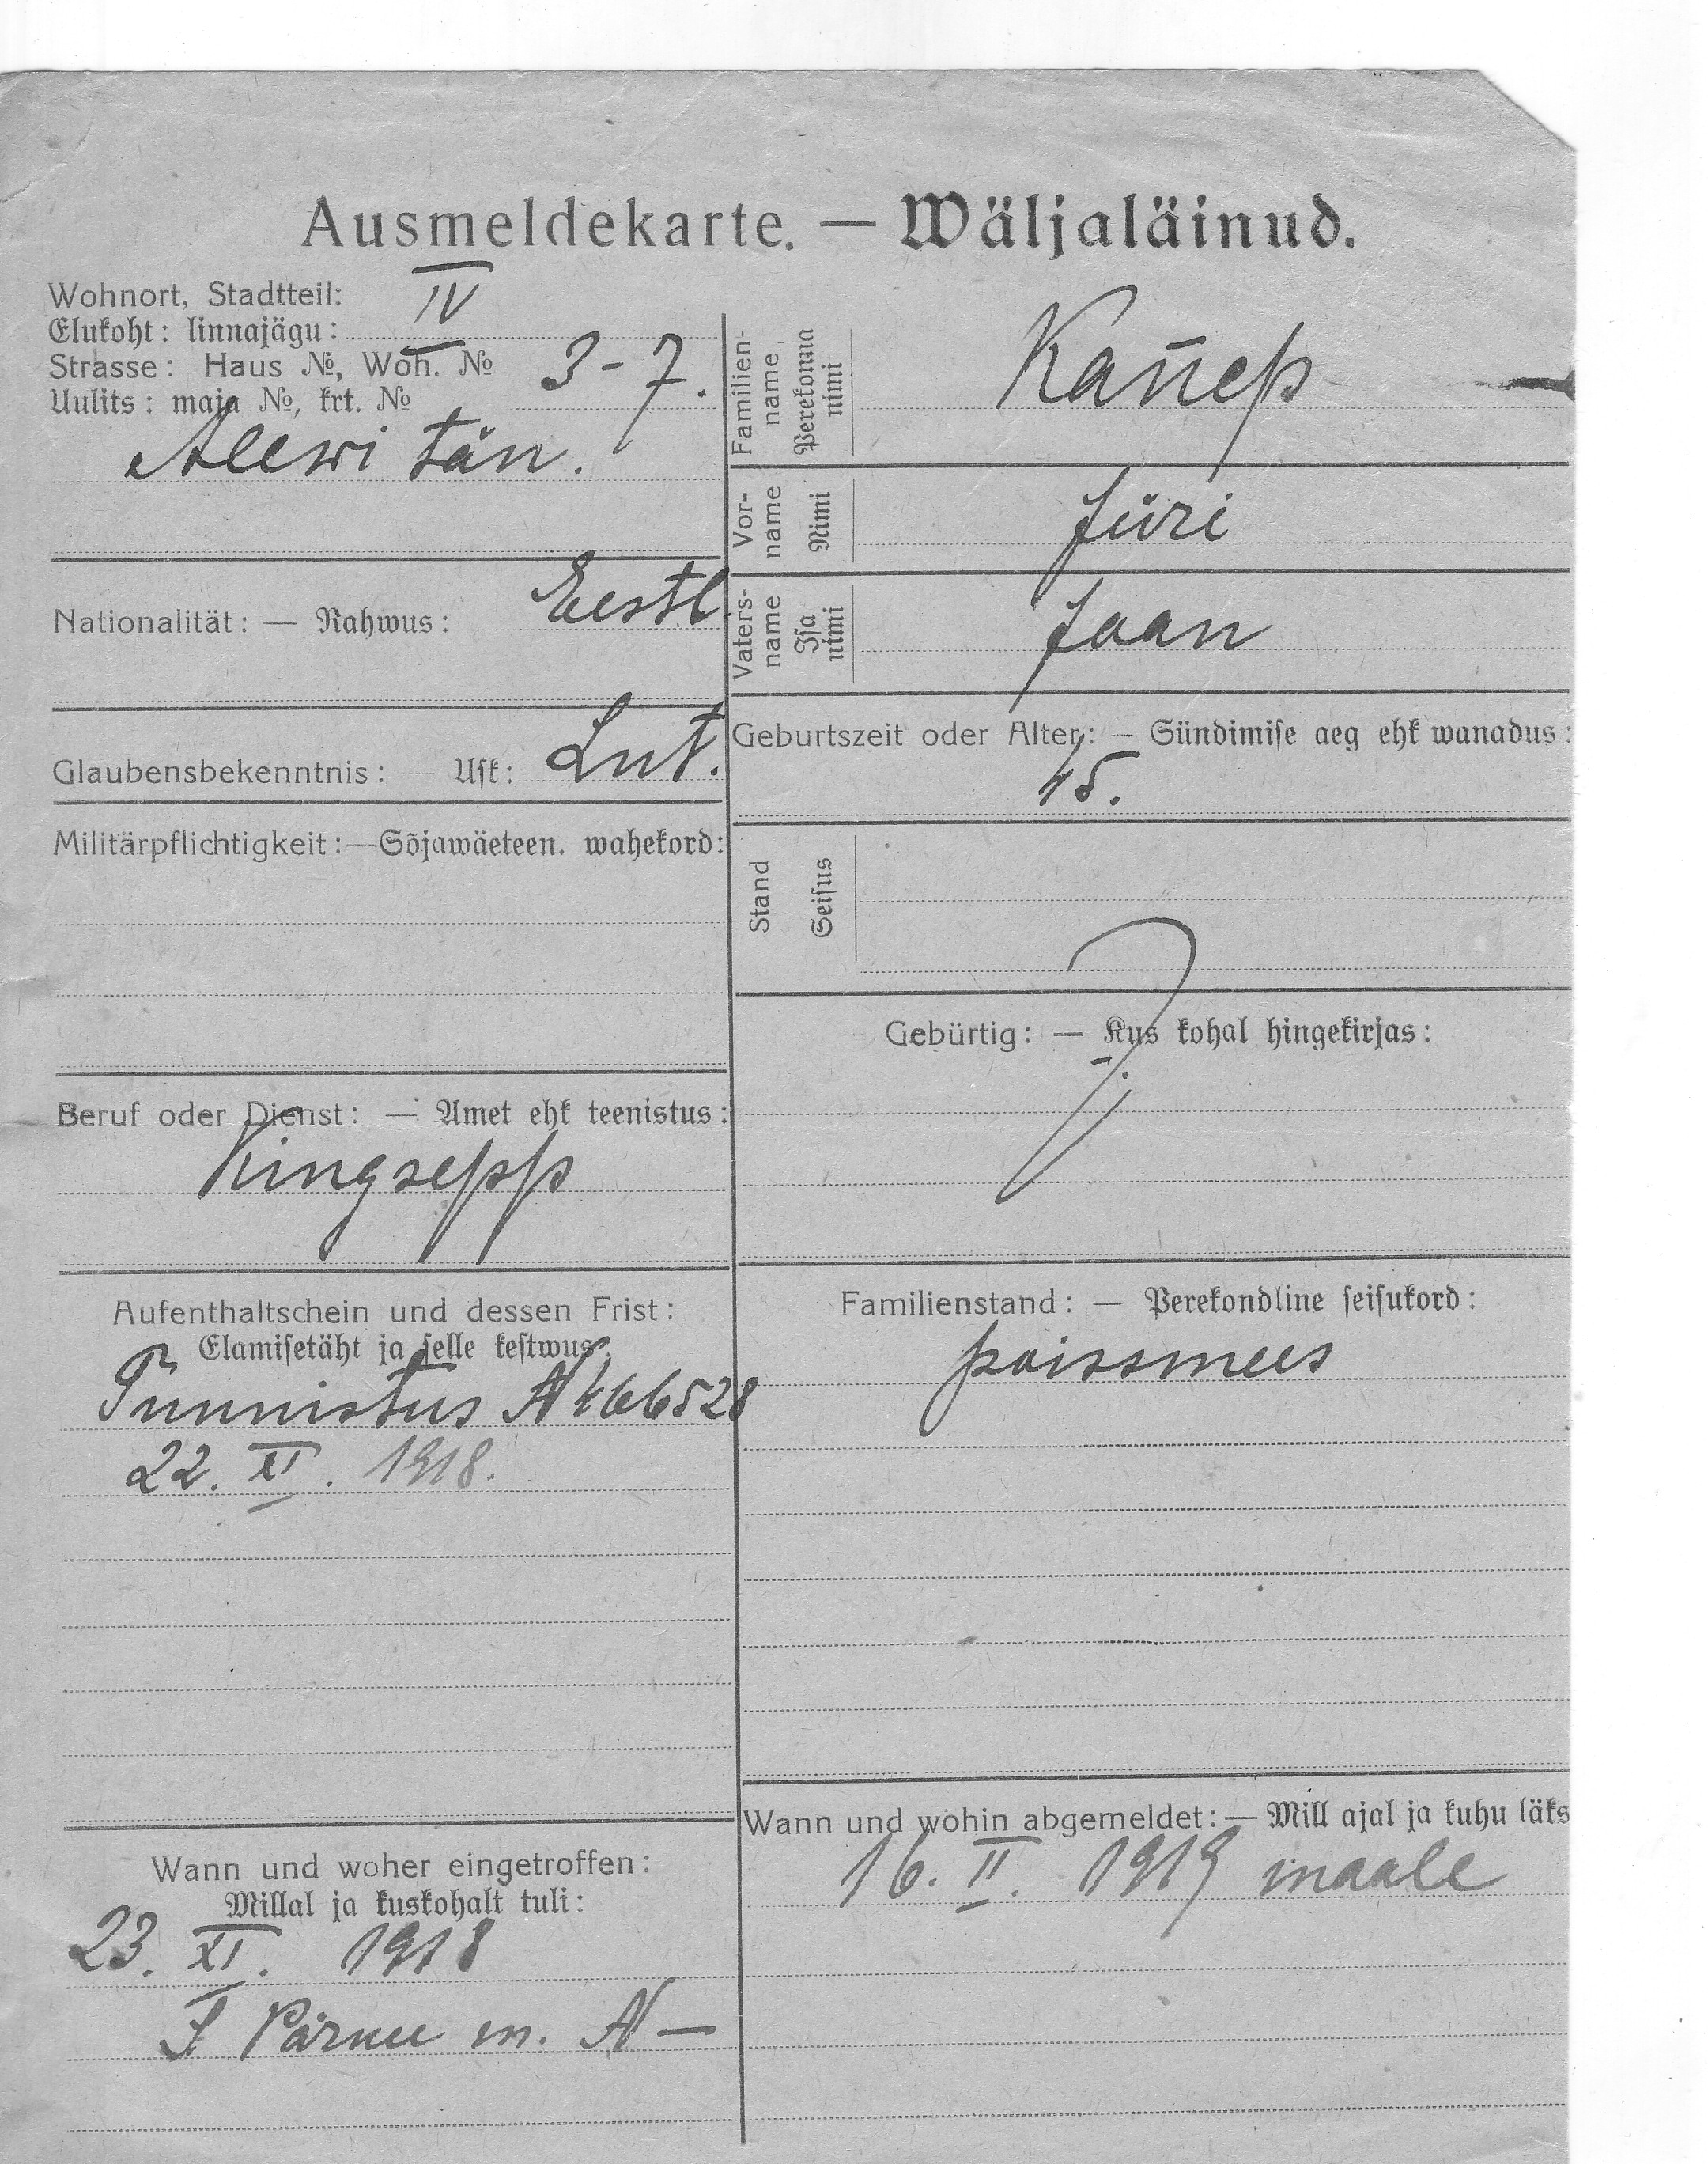 Ausmeldekarte. — Wäljaläinud.
Wohnort, Stadtteil:
Elukoht: linnajägu: IV
Strasse: Haus №, Woh. №
Uulits: maja №, krt. № 3-7.
Alewi tän.
Nationalität: — Rahwus: Eestl.
Glaubensbekenntnis: — Usk: Lut.
Militärpflichtigkeit:—Sõjawäeteen. wahekord:
Beruf oder Dienst: — Amet ehk teenistus:
Kingsepp
Aufenthaltschein und dessen Frist:
Elamisetäht ja selle kestwus:
Tunnistus № 166528
22. XI. 1918.
Wann und woher eingetroffen:
Millal ja kuskohalt tuli:
23. XI. 1918
I Pärnu m. № —
Familien-
name
Perekonna
nimi
Kan̄ep
Vor-
name
Nimi
Jüri
Vaters-
name
Isa
nimi
Jaan
Geburtszeit oder Alter: — Sündimise aeg ehk wanadus:
15.
Stand
Seisus
Gebürtig: — Kus kohal hingekirjas:
?
Familienstand: — Perekondline seisukord:
poissmees
Wann und wohin abgemeldet: — Mill ajal ja kuhu läks
16. II. 1919 maale